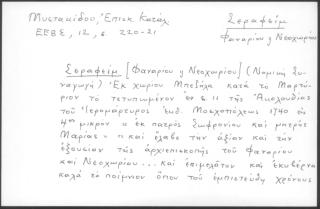 Μυστακίδου, Ἐπισκ. Κατάλ.
ΕΕΒΣ, 12, σ. 220-21
Σεραφείμ
Φαναρίου ἢ Νεοχωρίου
Σεραφείμ [Φαναρίου ἢ Νεοχωρίου] (Νομικὴ Συ-
ναγωγή) Ἐκ χωρίου Μπεζήλα κατὰ τὸ Μαρτύ-
ριον τὸ τετυπωμένον ἐν σ. 11 τῆς Ἀκολουθίας
τοῦ Ἱερομάρτυρος ἐκδ. Μοσχοπόλεως 1740 εἰς
4ον μικρὸν "ἐκ πατρὸς Σωφρονίου καὶ μητρὸς
Μαρίας" "καὶ ἔλαβε τὴν ἀξίαν καὶ τὴν
ἐξουσίαν τῆς ἀρχιεπισκοπῆς τοῦ Φαναρίου
καὶ Νεοχωρίου... καὶ ἐπιμελᾶτον καὶ ἐκυβέρνα
καλὰ τὸ ποίμνιον ὅπου τοῦ ἐμπιστεύθη χρόνους